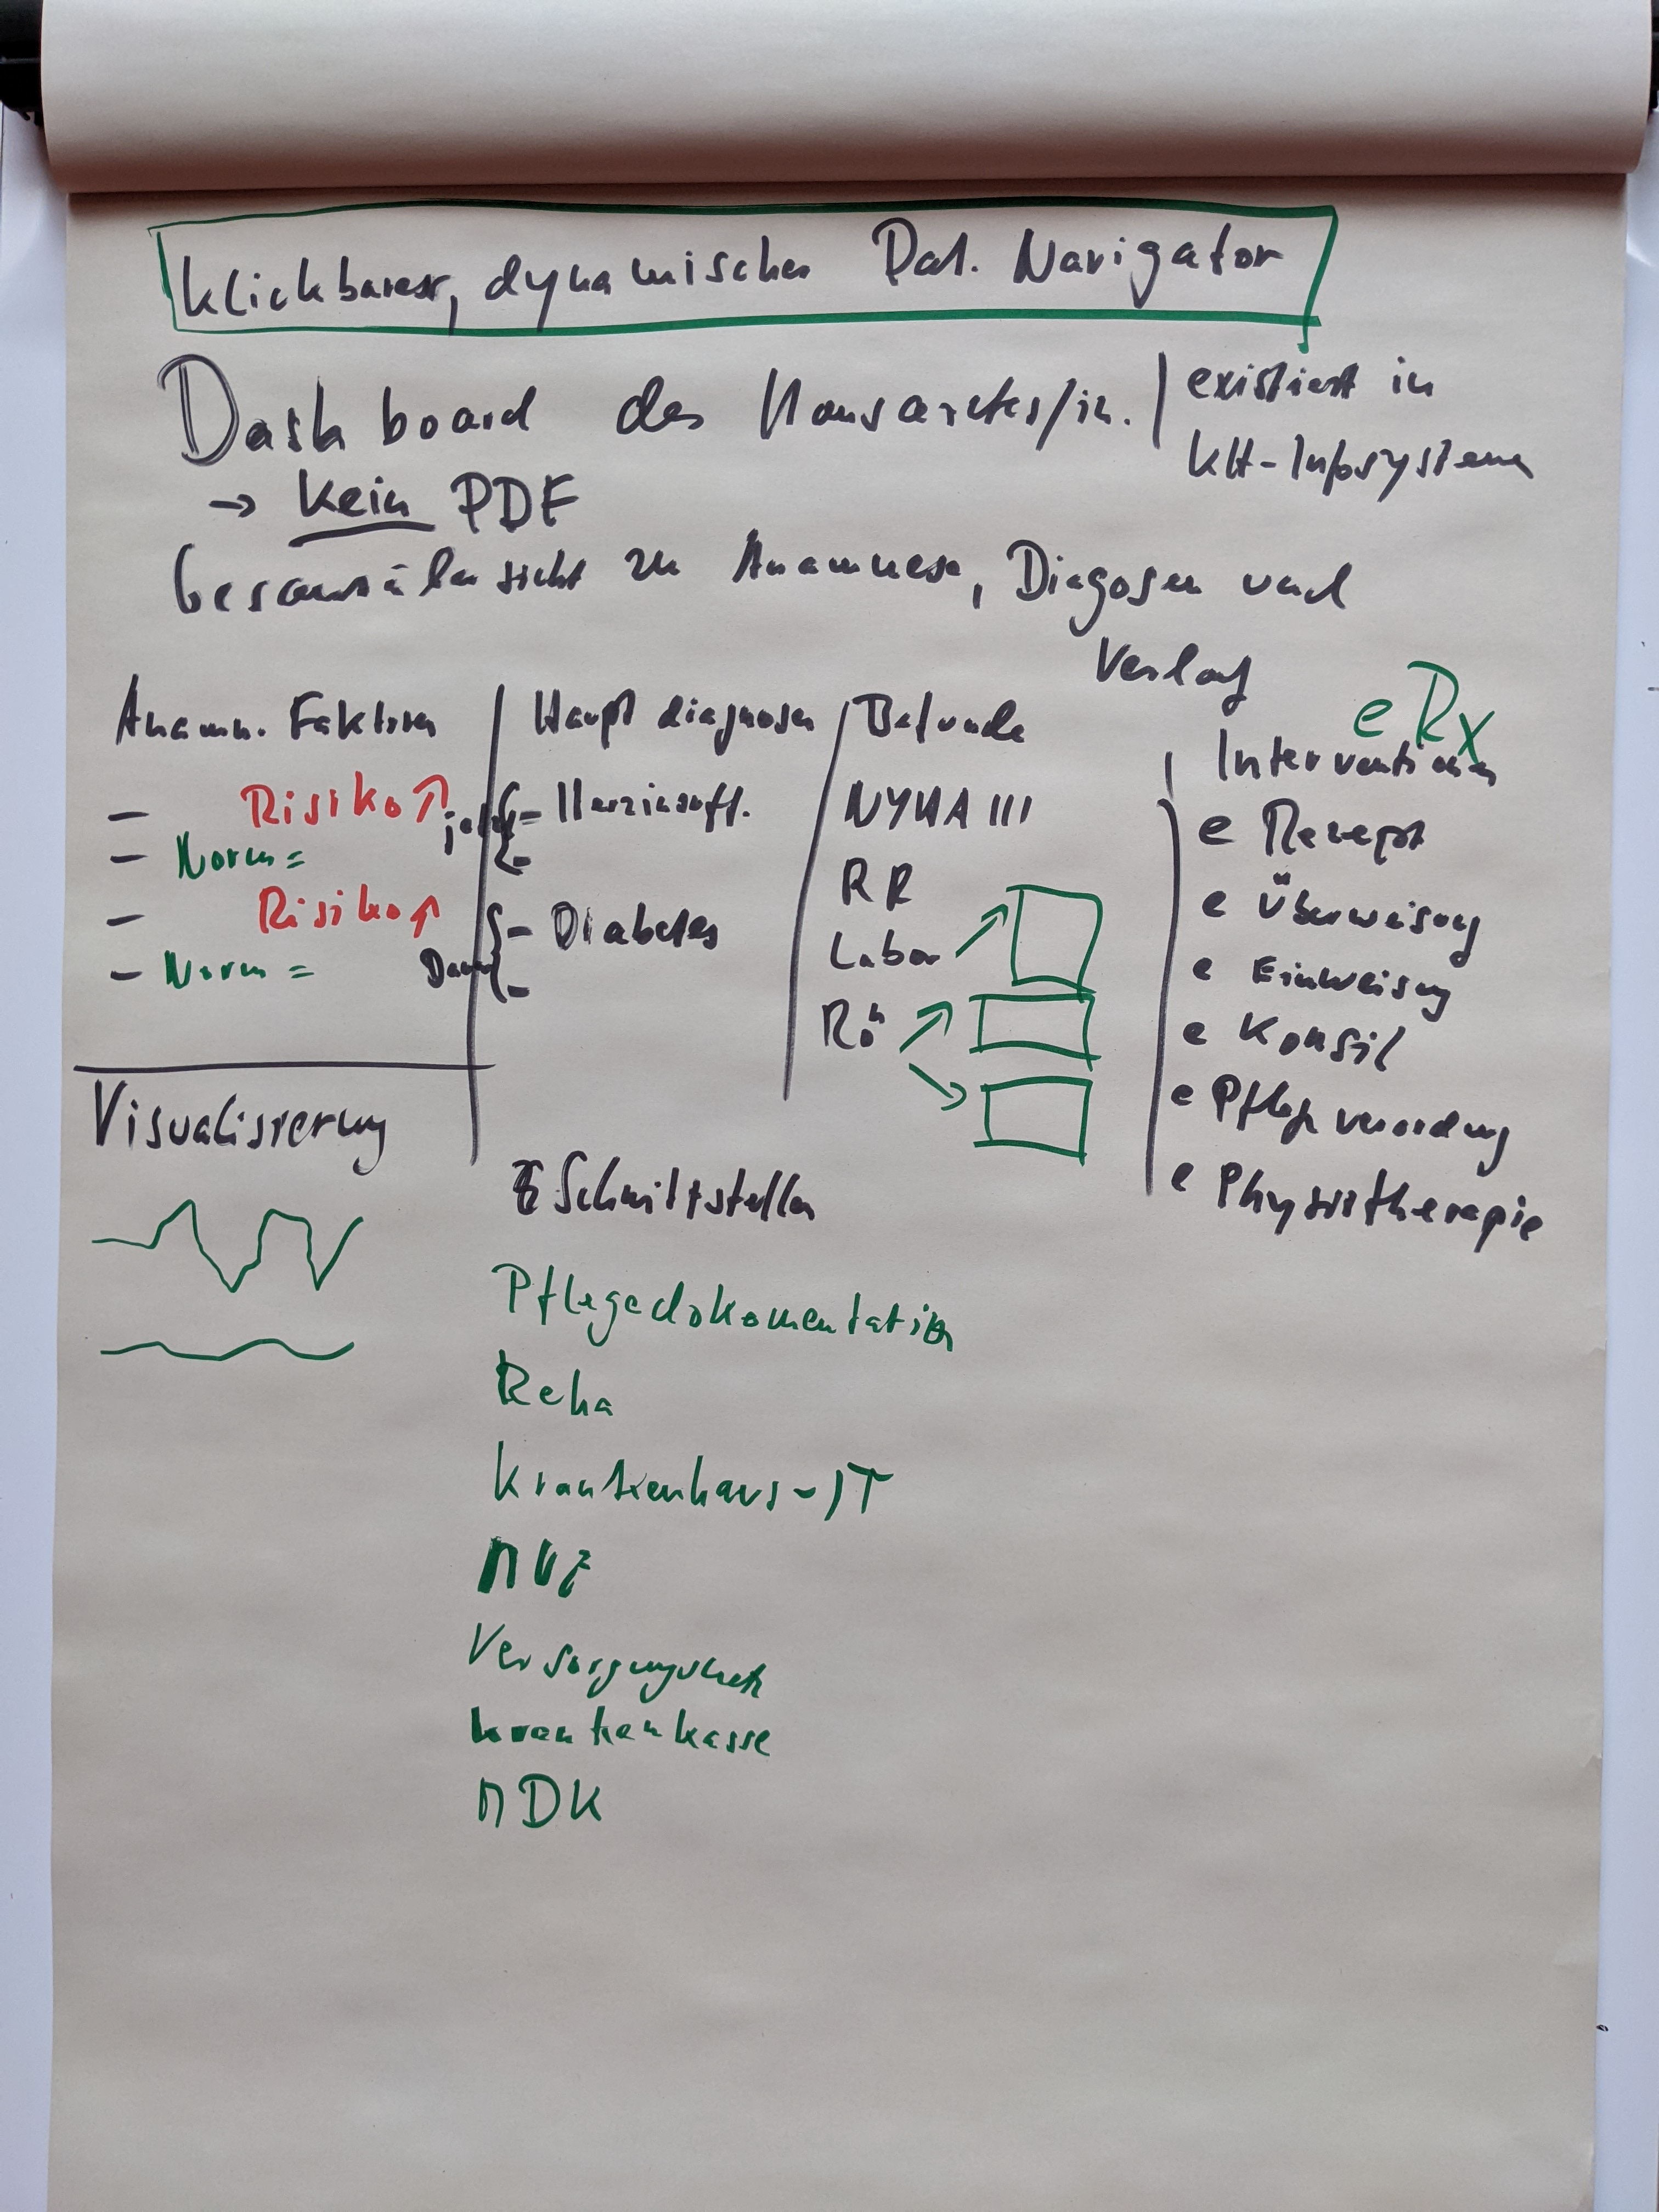 Klickbarer, dynamischer Pat. Navigator
Dashboard des Hausarztes/in. | existiert in
KH-Infosystem
→ Kein PDF
Gesamtübersicht zu Anamnese, Diagosen und
Verlauf
Anamn. Faktoren
– Risiko↑
– Norm =
– Risiko↑
– Norm =
Hauptdiagnosen
jetzt
– Herzinsuff.
–
– Diabetes
Dauer
–
Befunde
NYHA III
RR
Labor
Rö
eRx
Interventionen
e Rezept
e Überweisung
e Einweisung
e Konsil
e Pflegeverordnung
e Physiotherapie
Visualisierung
Schnittstellen
Pflegedokomentation
Reha
Krankenhaus-IT
MVZ
Versorgungsnetz
Krankenkasse
MDK